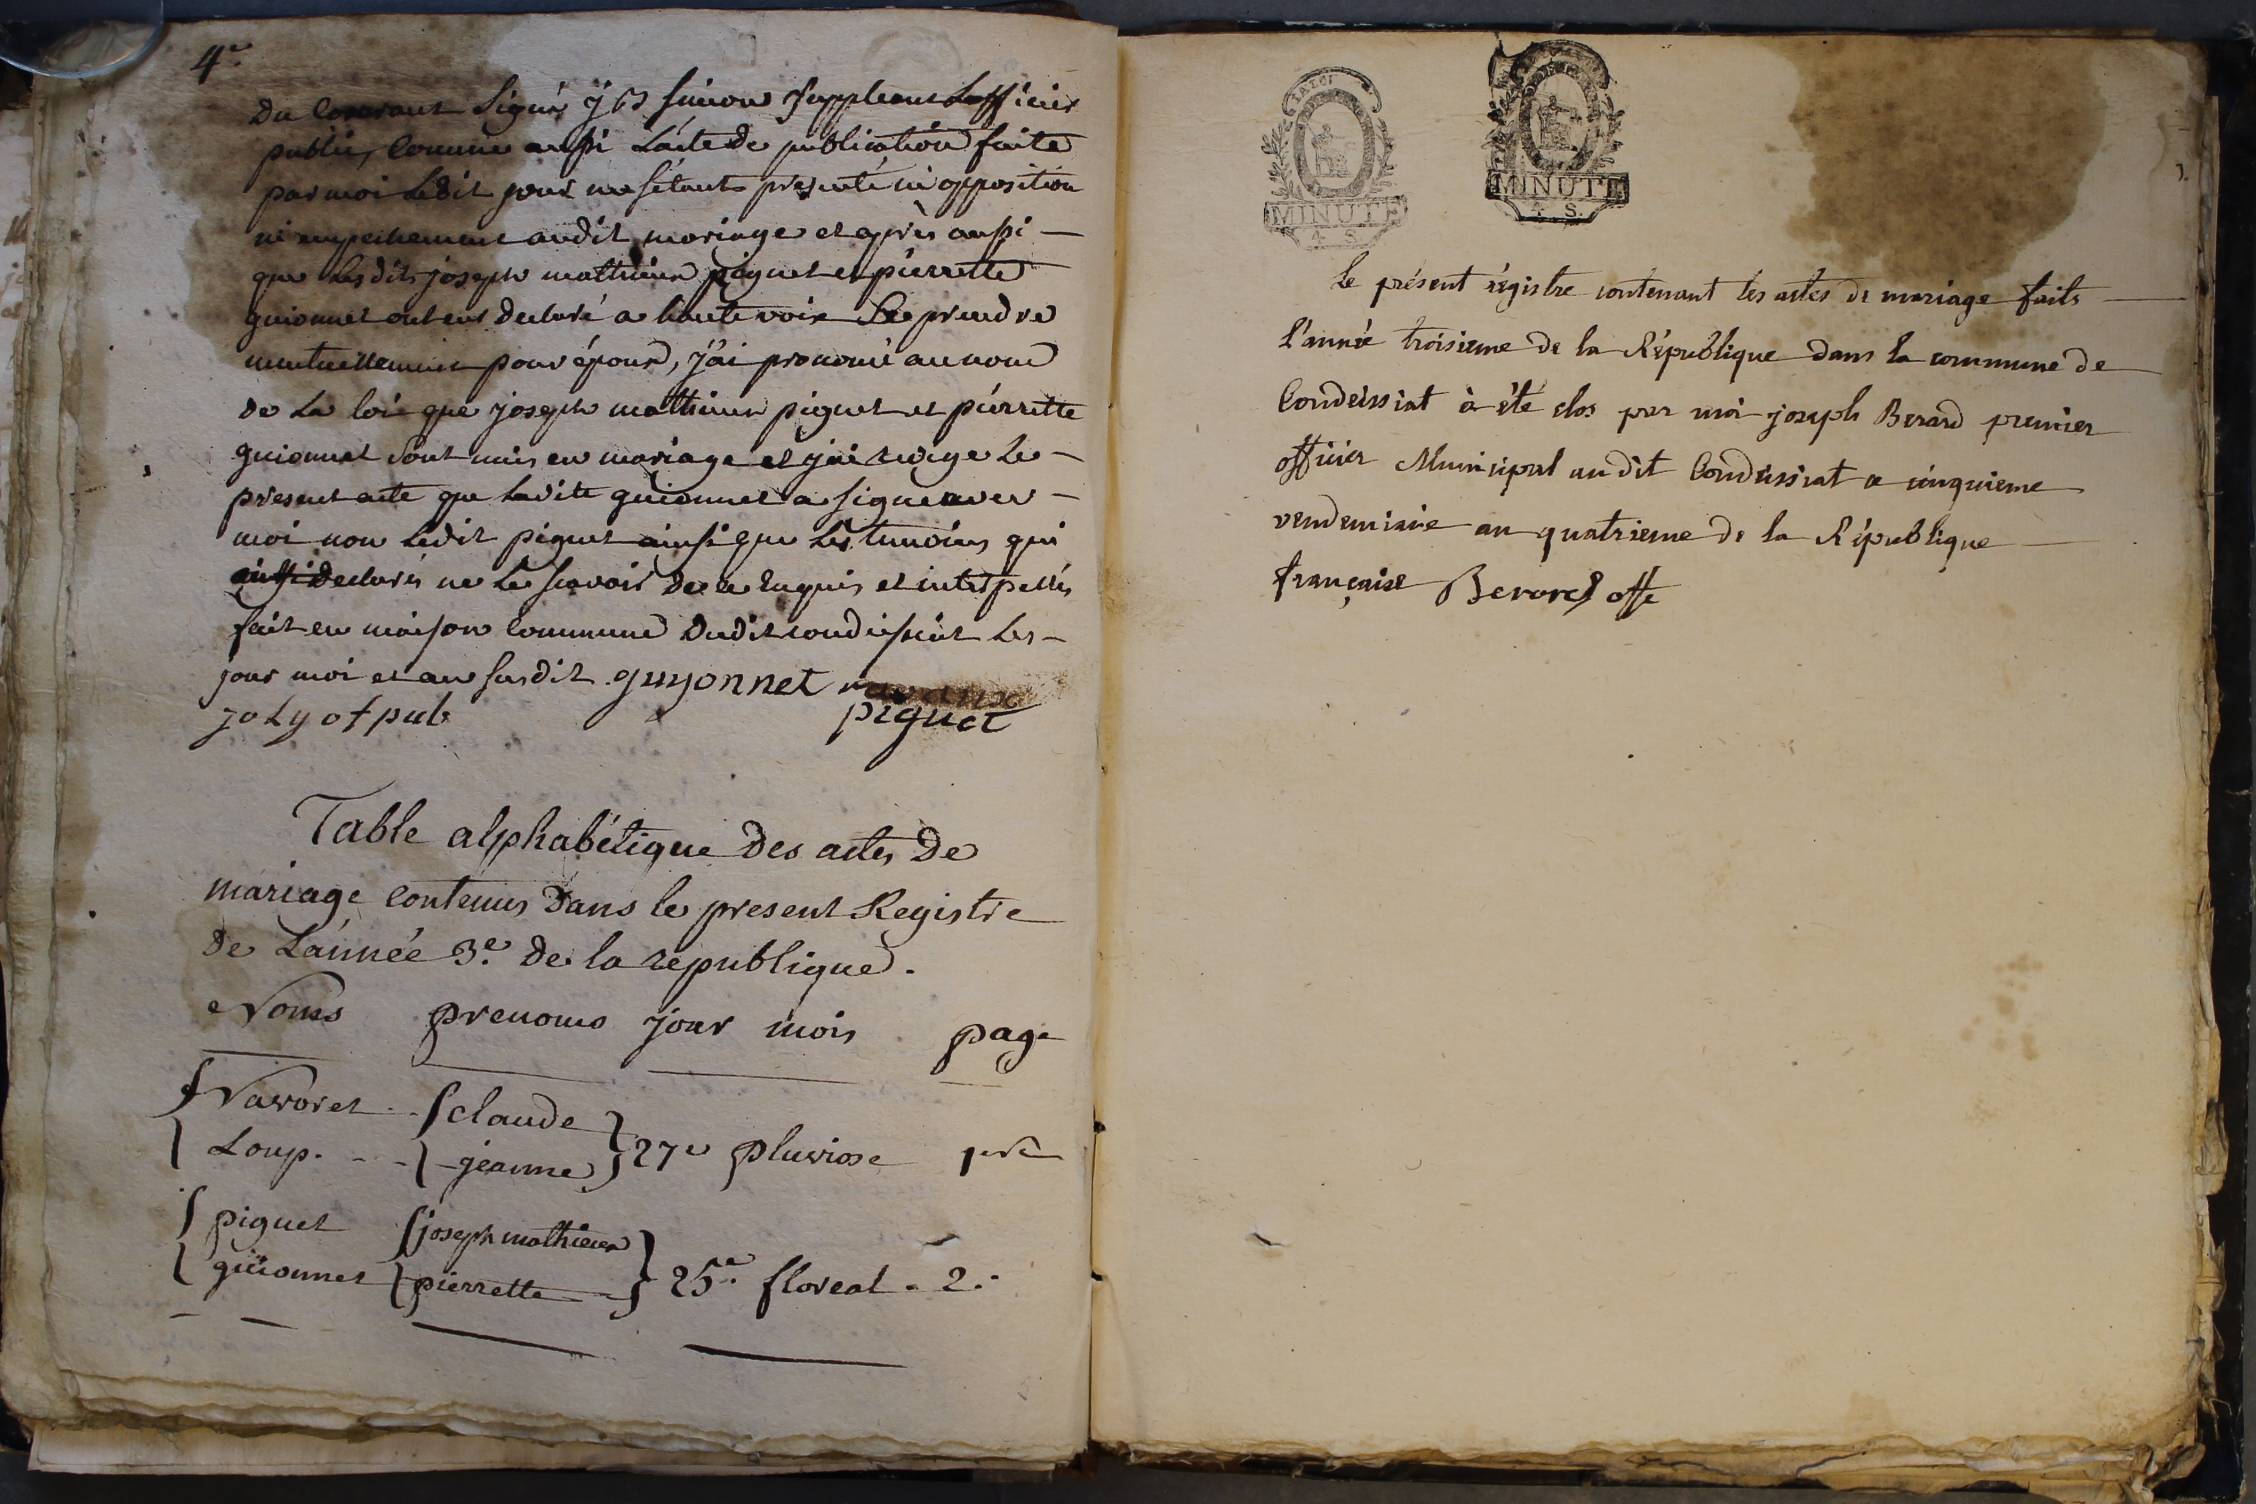 4e.
Du Courant Signés j B Simon suppleant Lofficier
public, Comme aussi Lacte De publication faite
par moi Ledit jour ne sétant présenté ni opposition
ni empechement audit mariage et après aussi –
que Lesdits joseph mathieu piguet et pierrette
guionnet ont eus declaré a haute voix Se prendre
mutuellement pour époux, j'ai prononcé au nom
De La loi que joseph mathieu piguet et pierrette
guionnet Sont unis en mariage et j'ai redigé Le –
present acte que Ladite guionnet a signé avec –
moi non Ledit piguet ainsi que Les temoins qui
Declarés ne Le scavoir De ce enquis et interpellés
fait en maison Commune Dudit condeissiat Les –
jour moi et an susdit . guyonnet
joly of pub
piguet
Table alphabétique Des actes De
mariage Contenus Dans le present Registre
De L'année 3e. De la republique.
Noms prenoms jour mois page
Navoret claude
Loup. jeanne 27e pluviose 1ere
piguet joseph mathieu
guionnet pierrette 25e. floreal . 2.
MINUTE
4 S.
MINUTE
4 S.
Le présent régistre contenant les actes de mariage faits
l'année troisieme de la République dans la commune de
Condeissiat à été clos par moi joseph Berard premier
officier Municipal audit Condeissiat ce cinquieme
vendemiaire an quatrieme de la République
française Berard off